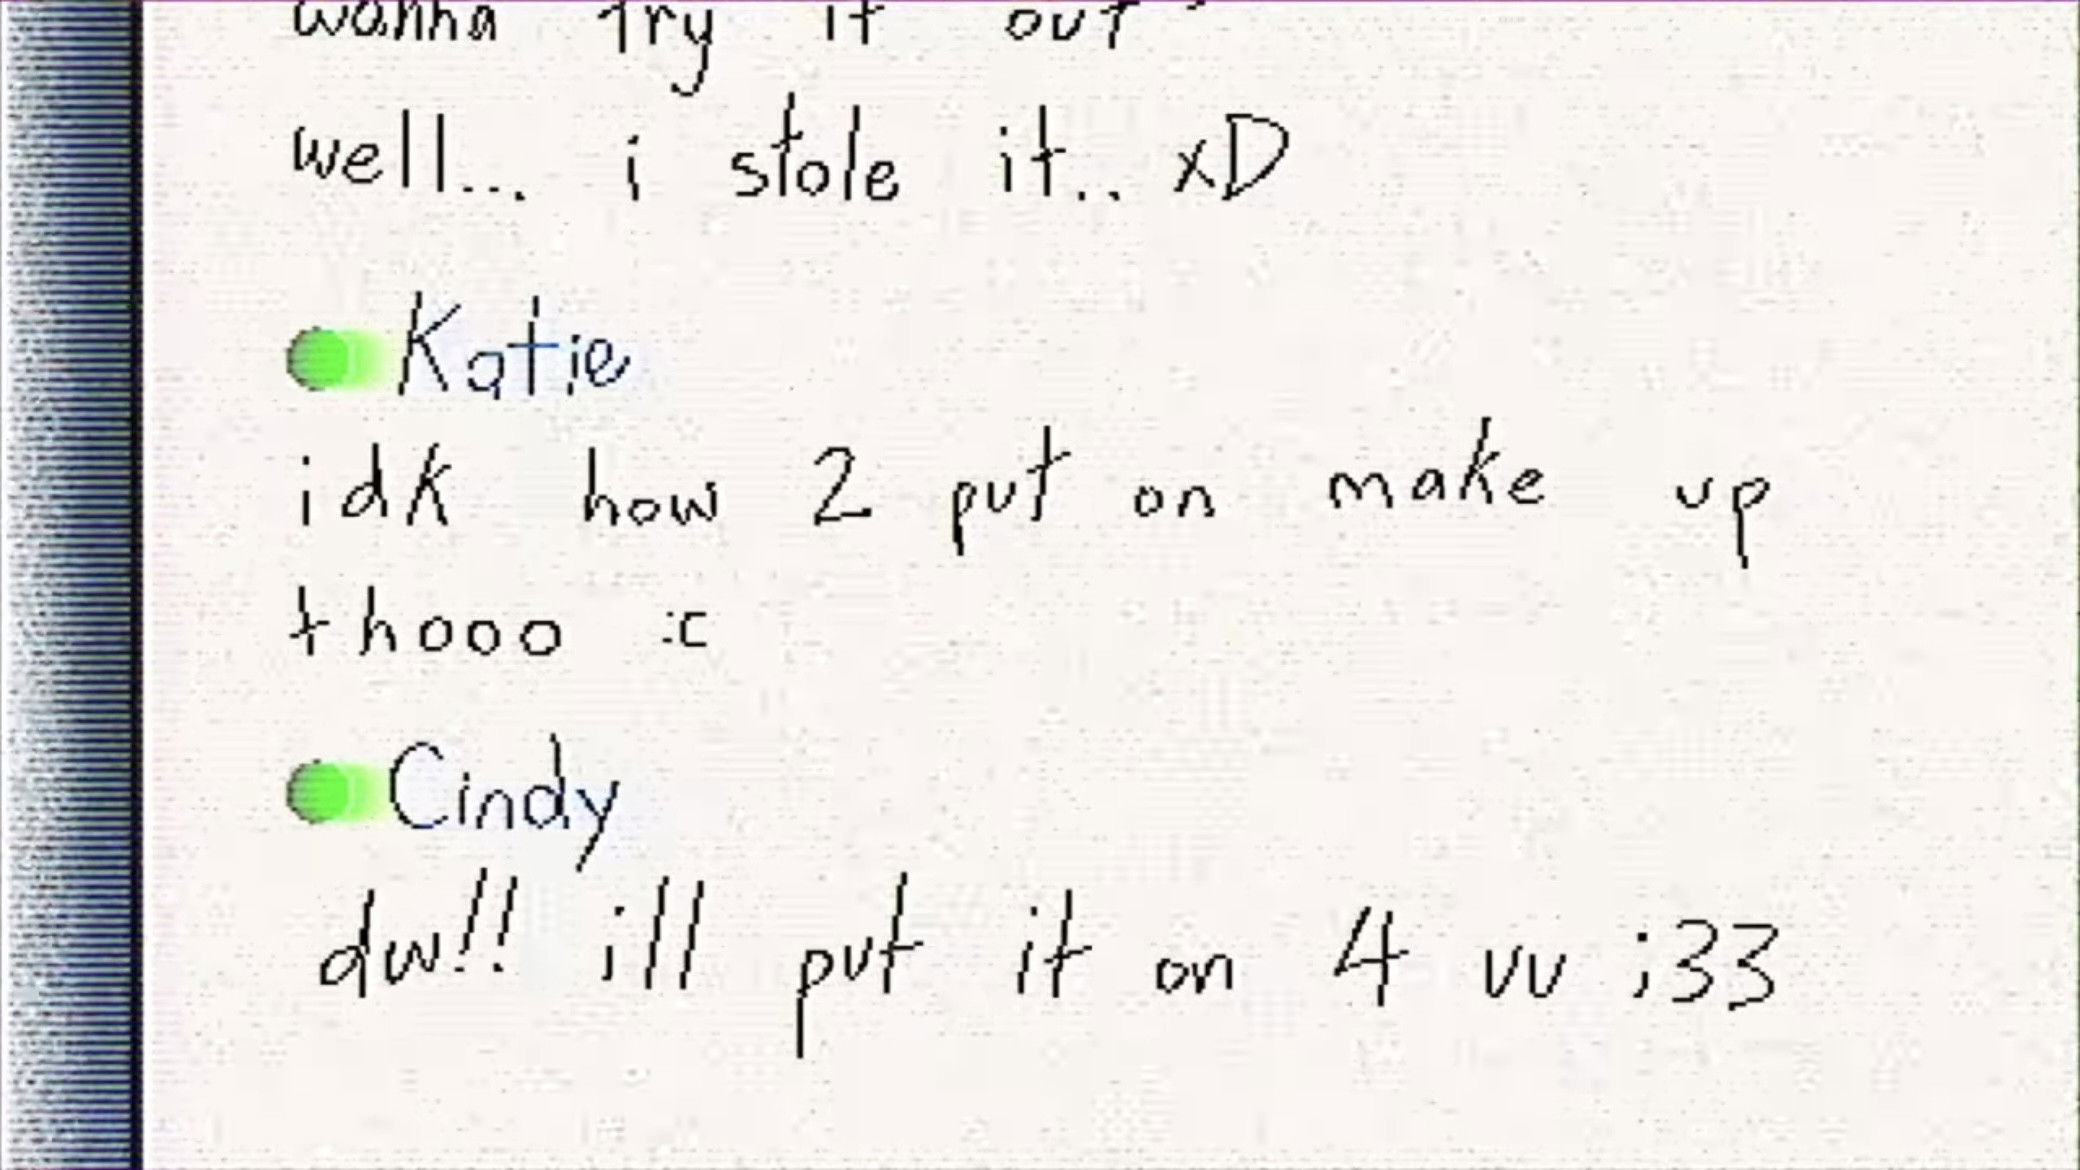 wanna try it out
well... i stole it.. xD
Katie
idk how 2 put on make up
thooo :c
Cindy
dw!! ill put it on 4 uu ;33